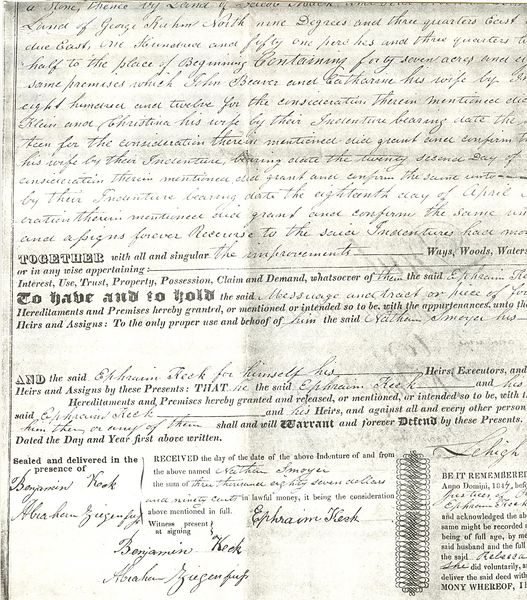 a Stone, thence by Land of Jacob
Land of George Kuhns North nine Degrees and three quarters East
due East, one Hundred and fifty one perches and three quarters to
half to the place of Beginning Containing forty seven acres and
same premises which John Beaver and Catharine his wife by
eight hundred and twelve for the consideration therein mentioned did
Klein and Christina his wife by their Indenture bearing date the
teen for the consideration therein mentioned did grant and confirm
his wife by their Indenture, bearing date the twenty second day of
consideration therein mentioned did grant and confirm the same unto
by their Indenture bearing date the eighteenth day of April
eration therein mentioned did grant and confirm the same
and assigns forever Recourse to the said Indentures had
TOGETHER with all and singular the improvements Ways, Woods, Waters
or in any wise appertaining:
Interest, Use, Trust, Property, Possession, Claim and Demand, whatsoever of them the said Ephraim
To have and to hold the said Messuage and tract or piece of
Hereditaments and Premises hereby granted, or mentioned or intended so to be, with the appurtenances, unto the
Heirs and Assigns: To the only proper use and behoof of him the said Nathan Smoyer his
AND the said Ephraim Keck for himself his Heirs, Executors, and
Heirs and Assigns by these Presents: THAT he the said Ephraim Keck and his
Hereditaments and Premises hereby granted and released, or mentioned, or intended so to be, with
said Ephraim Keck and his Heirs, and against all and every other person
him them or any of them shall and will Warrant and forever Defend by these Presents.
Dated the Day and Year first above written.
Sealed and delivered in the
presence of
Benjamin Keck
Abraham Ziegenfuss
RECEIVED the day of the date of the above Indenture of and from
the above named Nathan Smoyer
the sum of three thousand eighty seven dollars
and ninety cents in lawful money, it being the consideration
above mentioned in full.
Witness present
at signing
Ephraim Keck
Benjamin Keck
Abraham Ziegenfuss
Lehigh
BE IT REMEMBERED
Anno Domini, 1847,
Ephraim Keck
and acknowledged the
same might be recorded
being of full age, by me
said husband and the full
the said Rebecca
She did voluntarily, and
deliver the said deed with
MONY WHEREOF, I